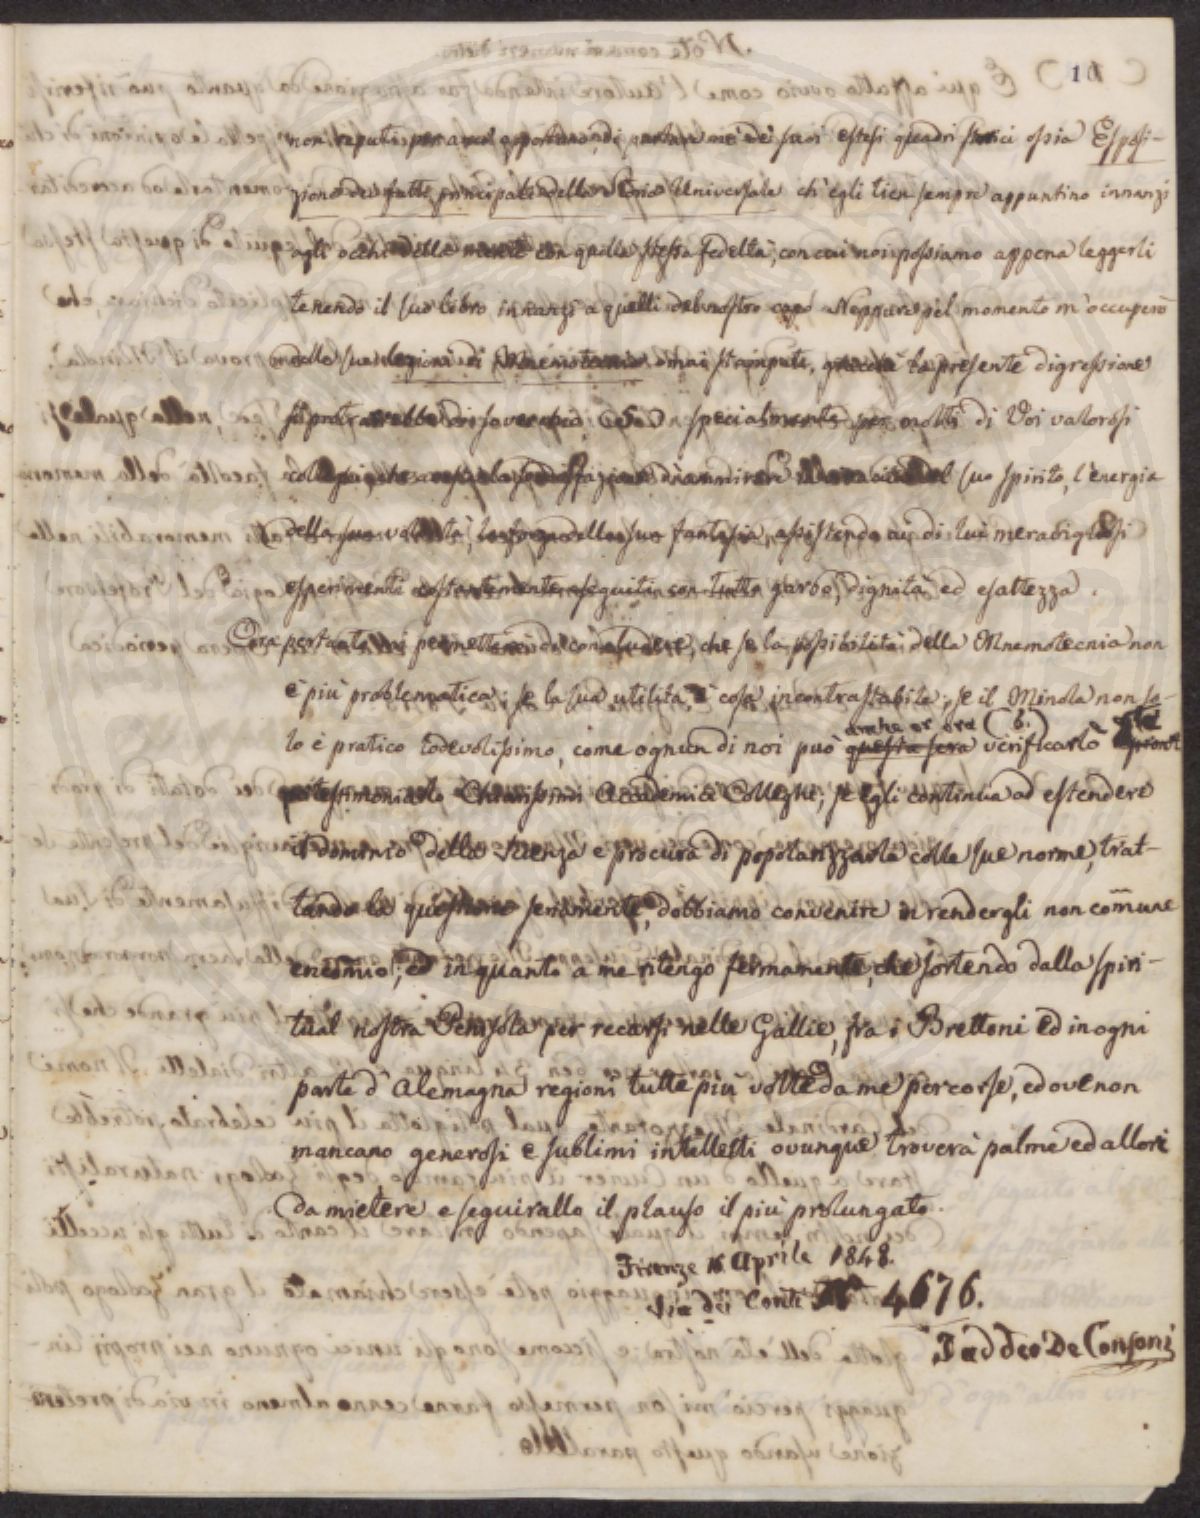 10
non reputi per anco opportuno di parlare nè de' suoi estesi quadri storici ossia Esposi-
zione dei fatti principali della Storia Universale ch'egli tien sempre appuntino innanzi
agli occhi della mente con quella stessa fedeltà, con cui noi possiamo appena leggerli
tenendo il suo libro innanzi a quelli del nostro capo. Neppure pel momento m'occuperò
delle sue lezioni di Mnemotecnia omai stampate, la presente digressione
si protrarrebbe di soverchio, specialmente per molti di Voi valorosi
colleghi che la soddisfazione d'ammirare del suo spirito, l'energia
della sua volontà, la forza della sua fantasia, assistendo ai di lui meravigliosi
esperimenti costantemente eseguiti con tutto garbo, dignità ed esattezza.
Ora pertanto mi permetterò di concludere, che se la possibilità della Mnemotecnia non
è più problematica; se la sua utilità è cosa incontrastabile; se il Minola non so-
lo è pratico lodevolissimo, come ognun di noi può questa sera anche or ora (b.) verificarlo
testimoniarlo Chiarissimi Accademici Colleghi; se egli continua ad estendere
il dominio della scienza e procura di popolarizzarla colle sue norme, trat-
tando la questione seriamente, dobbiamo convenire in rendergli non comune
encomio; ed in quanto a me ritengo fermamente, che sortendo dalla spiri-
tual nostra Penisola per recarsi nelle Gallie, fra i Brettoni ed in ogni
parte d'Alemagna regioni tutte più volte da me percorse, ed ove non
mancano generosi e sublimi intelletti ovunque troverà palme ed allori
da mietere e seguirallo il plauso il più prolungato.
Firenze 16 Aprile 1848.
Via dei Conti N° 4676.
Taddeo De Consoni